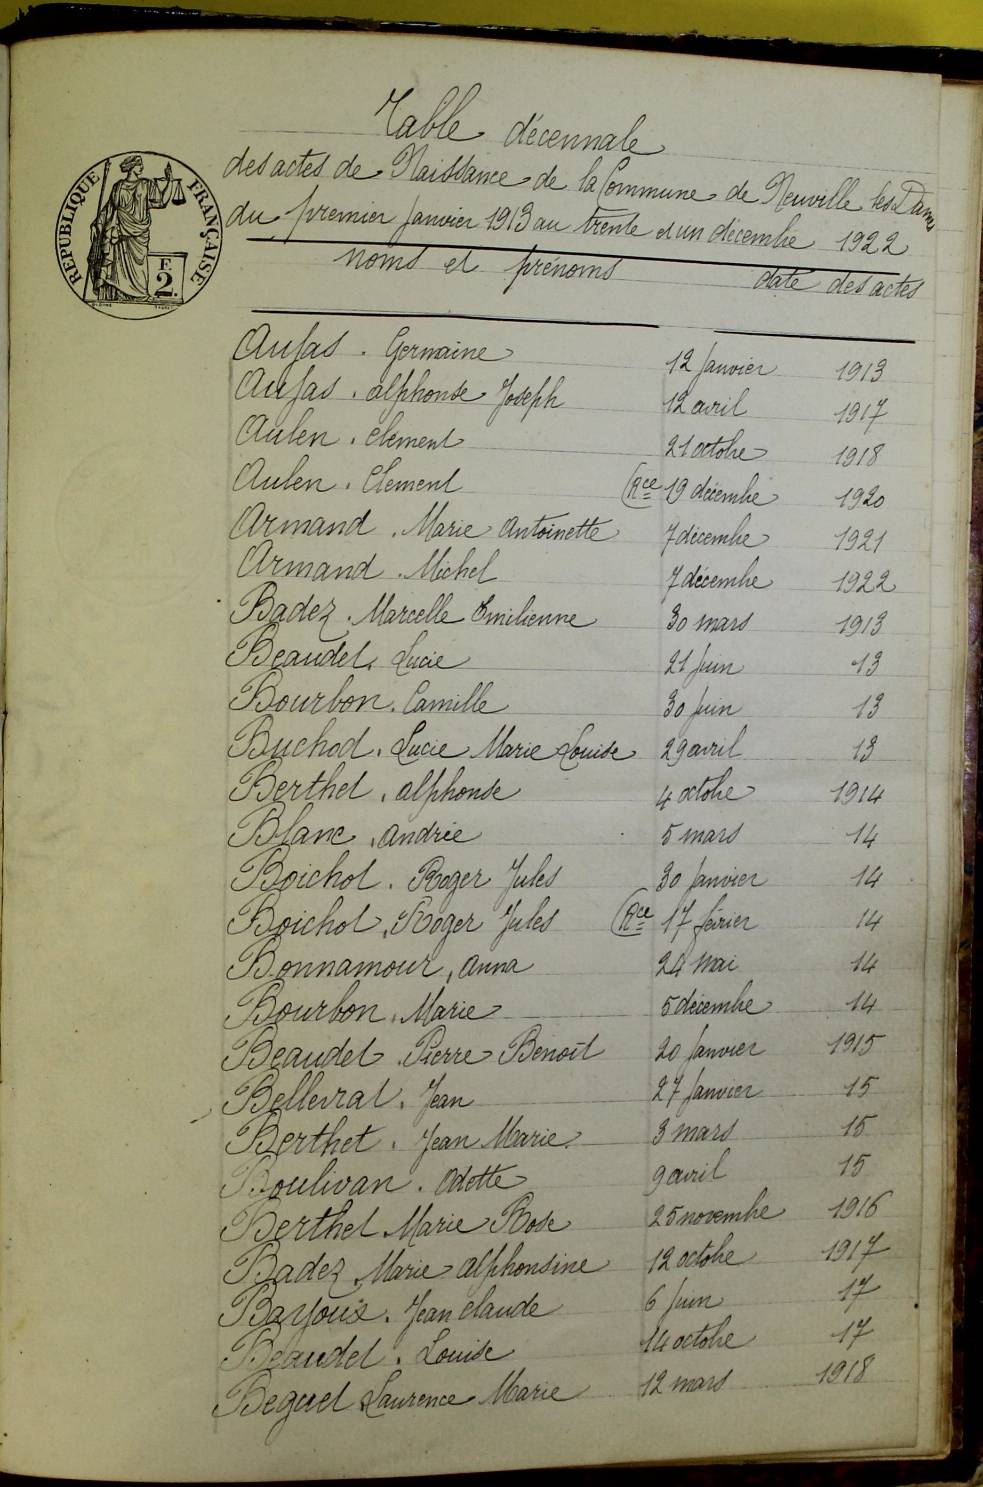 Table décennale
des actes de Naissance de la Commune de Neuville les Dames
du premier Janvier 1913 au trente et un décembre 1922
RÉPUBLIQUE FRANÇAISE
F.
2.
noms et prénoms date des actes
Aufas . Germaine 12 Janvier 1913
Aufas . Alphonse Joseph 12 avril 1917
Aulen . Clement 21 octobre 1918
Aulen . Clement (Rce 19 décembre 1920
Armand . Marie Antoinette 7 décembre 1921
Armand . Michel 7 décembre 1922
Badez . Marcelle Emilienne 30 mars 1913
Beaudet . Lucie 21 Juin 13
Bourbon . Camille 30 Juin 13
Buchod . Lucie Marie Louise 29 avril 13
Berthet . Alphonse 4 octobre 1914
Blanc . Andrée 5 mars 14
Boichot . Roger Jules 30 Janvier 14
Boichot . Roger Jules (Rce 17 février 14
Bonnamour . Anna 24 Mai 14
Bourbon . Marie 5 décembre 14
Beaudet . Pierre Benoît 20 Janvier 1915
Bellevrat . Jean 27 Janvier 15
Berthet . Jean Marie 3 mars 15
Boulivan . Odette 9 avril 15
Berthet Marie Rose 25 novembre 1916
Badez . Marie Alphonsine 12 octobre 1917
Bayoux . Jean Claude 6 Juin 17
Beaudet . Louise 14 octobre 17
Beguet Laurence Marie 12 mars 1918